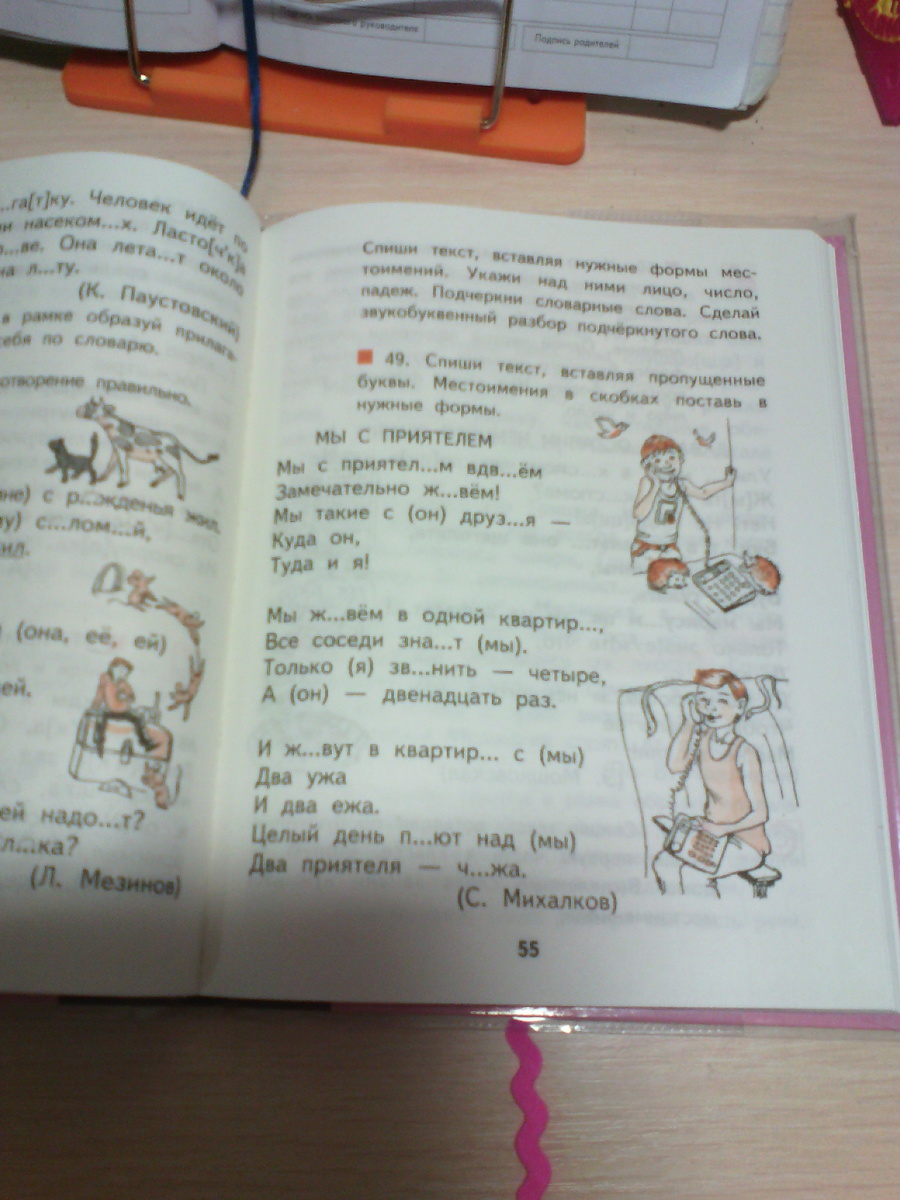 руководителя
Подпись родителей
...га[т]ку. Человек идёт по
насеком...х. Ласто[ч'к]а
...ве. Она лета...т около
на л...ту.
(К. Паустовский)
в рамке образуй прилаг-
себя по словарю.
отворение правильно.
с р...жденья жил,
с...лом...й,
(она, её, ей)
ей надо...т?
(Л. Мезинов)
Спиши текст, вставляя нужные формы мес-
тоимений. Укажи над ними лицо, число,
падеж. Подчеркни словарные слова. Сделай
звукобуквенный разбор подчёркнутого слова.
49. Спиши текст, вставляя пропущенные
буквы. Местоимения в скобках поставь в
нужные формы.
МЫ С ПРИЯТЕЛЕМ
Мы с приятел...м вдв...ём
Замечательно ж...вём!
Мы такие с (он) друз...я —
Куда он,
Туда и я!
Мы ж...вём в одной квартир...,
Все соседи зна...т (мы).
Только (я) зв...нить — четыре,
А (он) — двенадцать раз.
И ж...вут в квартир... с (мы)
Два ужа
И два ежа.
Целый день п...ют над (мы)
Два приятеля — ч...жа.
(С. Михалков)
55